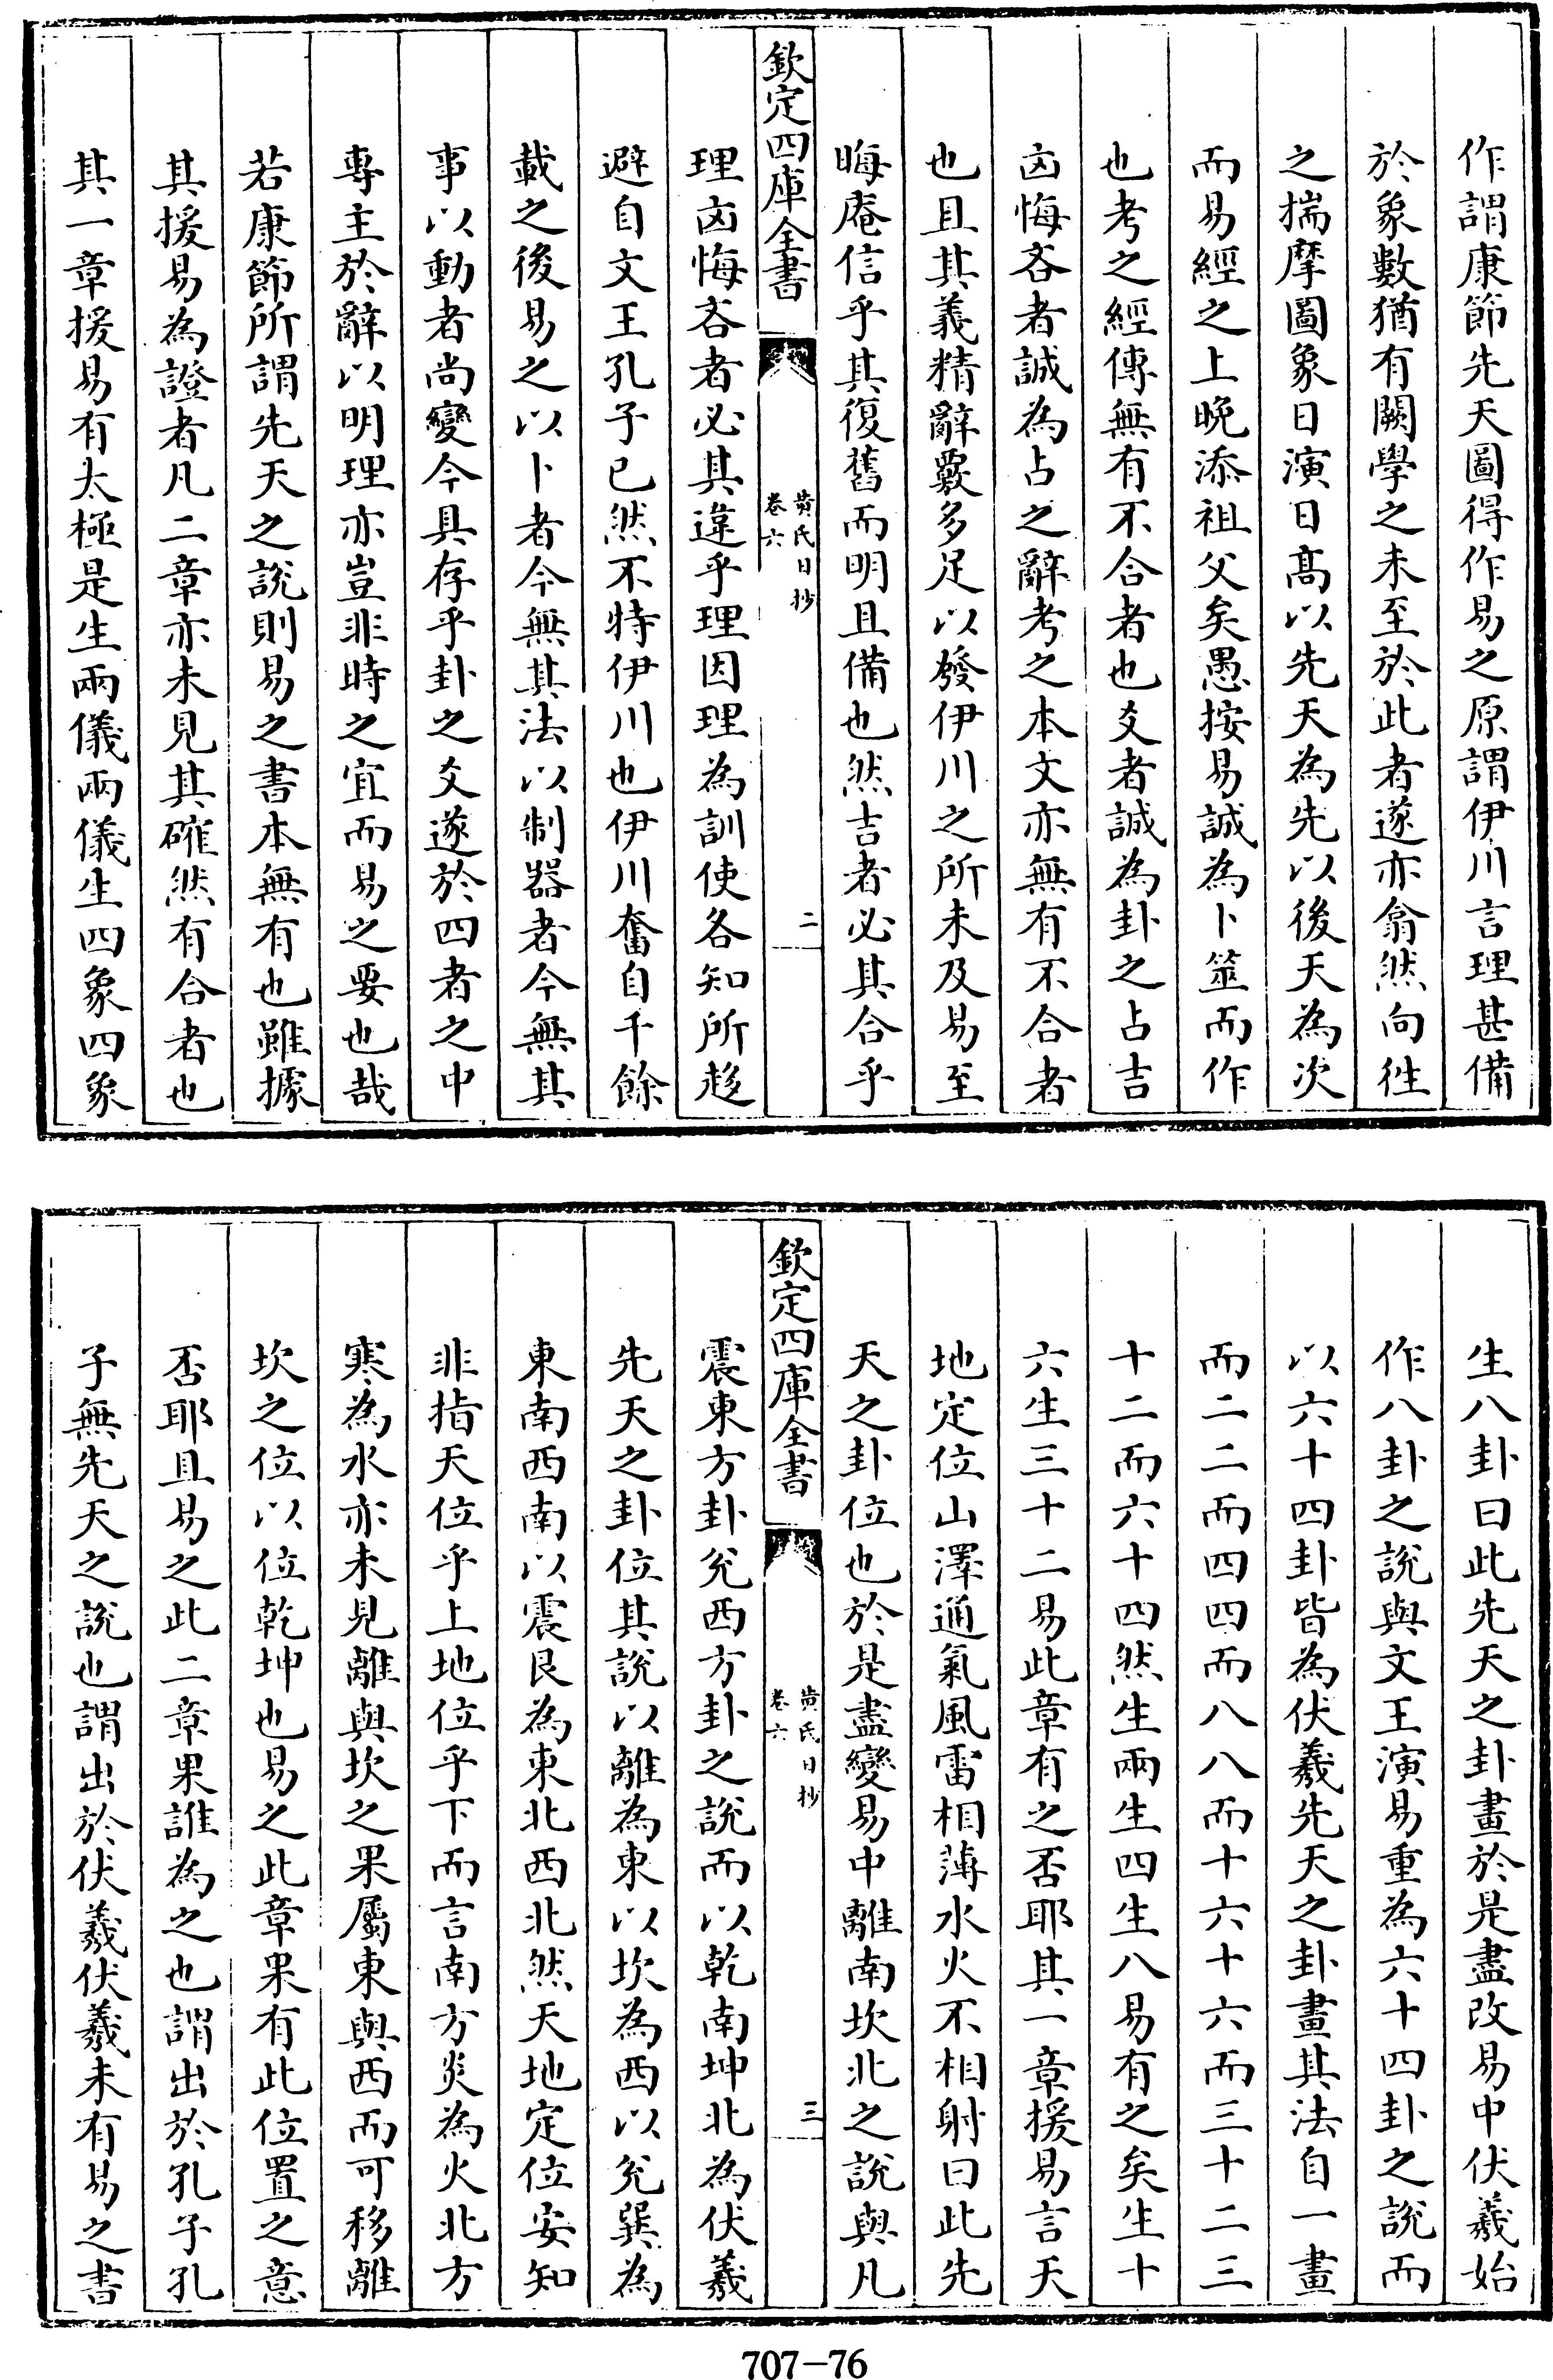 作謂康節先天圖得作易之原謂伊川言理甚備
於象數猶有闕學之未至於此者遂亦翕然向徃
之揣摩圖象日演日髙以先天為先以後天為次
而易經之上晚添祖父矣愚按易誠為卜筮而作
也考之經傳無有不合者也爻者誠為卦之占吉
凶悔吝者誠為占之辭考之本文亦無有不合者
也且其義精辭覈多足以發伊川之所未及易至
晦庵信乎其復舊而明且備也然吉者必其合乎
欽定四庫全書
黄氏日抄
卷六
二
理凶悔吝者必其違乎理因理為訓使各知所趍
避自文王孔子已然不特伊川也伊川奮自千餘
載之後易之以卜者今無其法以制器者今無其
事以動者尚變今具存乎卦之爻遂於四者之中
專主於辭以明理亦豈非時之宜而易之要也哉
若康節所謂先天之說則易之書本無有也雖據
其援易為證者凡二章亦未見其確然有合者也
其一章援易有太極是生兩儀兩儀生四象四象
生八卦曰此先天之卦畫於是盡改易中伏羲始
作八卦之說與文王演易重為六十四卦之說而
以六十四卦皆為伏羲先天之卦畫其法自一畫
而二二而四四而八八而十六十六而三十二三
十二而六十四然生兩生四生八易有之矣生十
六生三十二易此章有之否耶其一章援易言天
地定位山澤通氣風雷相薄水火不相射曰此先
天之卦位也於是盡變易中離南坎北之說與凡
欽定四庫全書
黄氏日抄
卷六
三
震東方卦兊西方卦之說而以乾南坤北為伏羲
先天之卦位其說以離為東以坎為西以兊巽為
東南西南以震艮為東北西北然天地定位安知
非指天位乎上地位乎下而言南方炎為火北方
寒為水亦未見離與坎之果屬東與西而可移離
坎之位以位乾坤也易之此章果有此位置之意
否耶且易之此二章果誰為之也謂出於孔子孔
子無先天之說也謂出於伏羲伏羲未有易之書
707-76